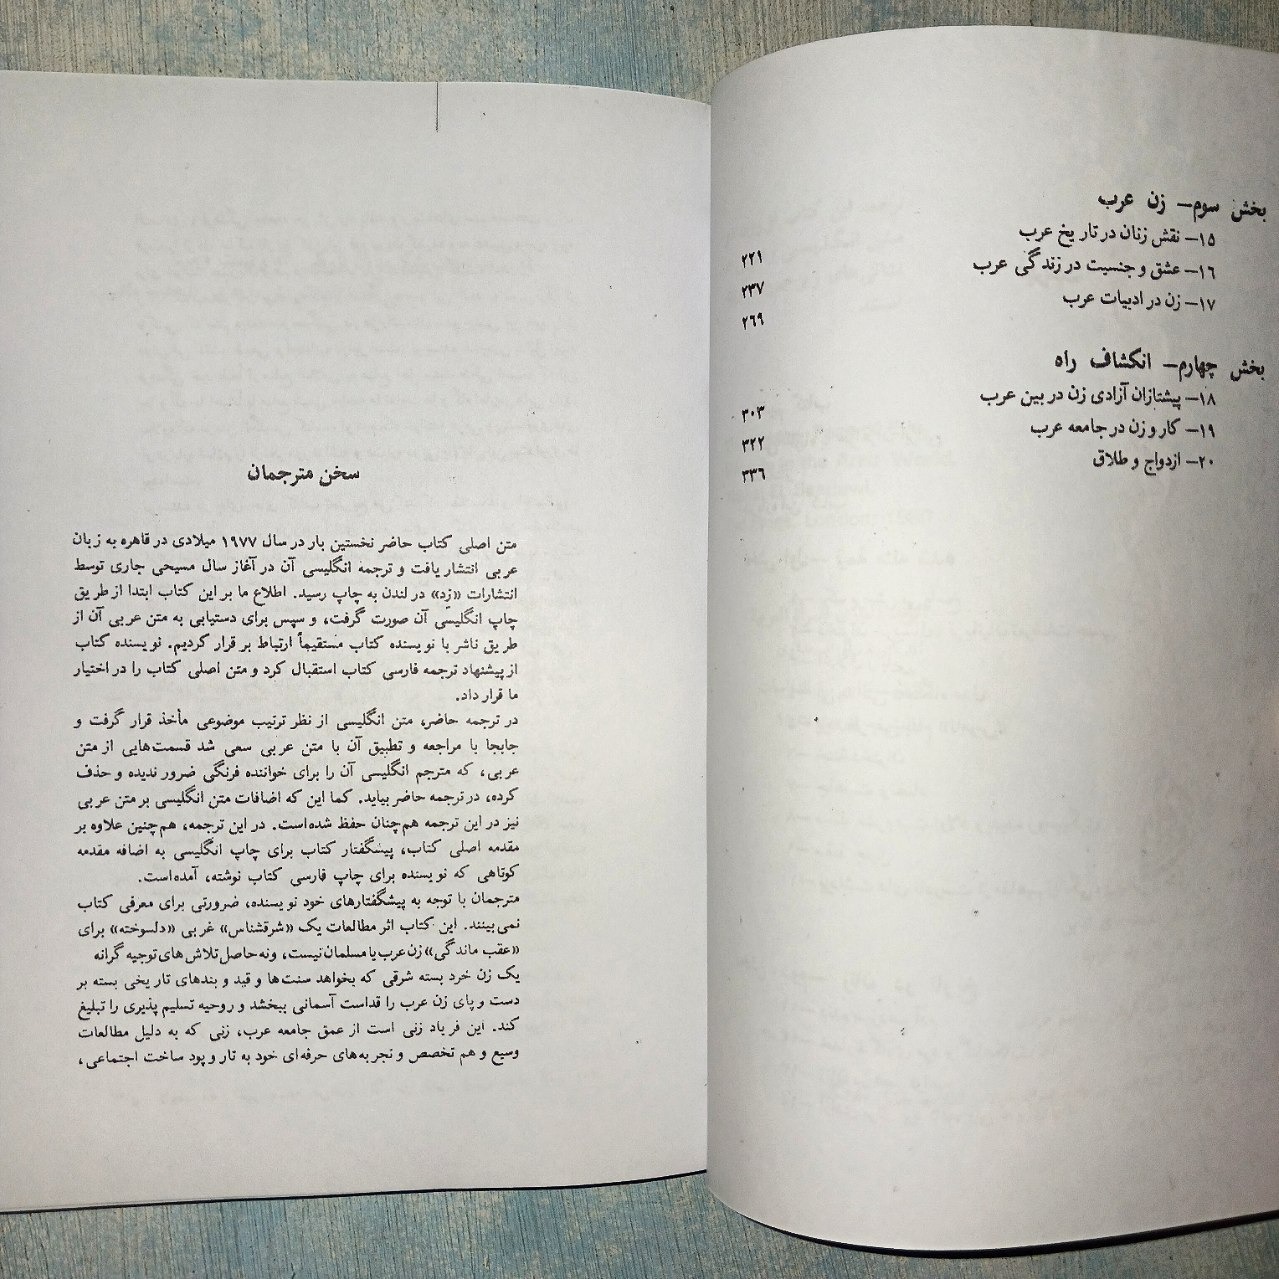 بخش سوم– زن عرب
۱۵– نقش زنان در تاریخ عرب ۲۲۱
۱۶– عشق و جنسیت در زندگی عرب ۲۳۷
۱۷– زن در ادبیات عرب ۲۶۹
بخش چهارم– انکشاف راه
۱۸– پیشتازان آزادی زن در بین عرب ۳۰۳
۱۹– کار و زن در جامعه عرب ۳۲۲
۲۰– ازدواج و طلاق ۳۳۶
سخن مترجمان
متن اصلی کتاب حاضر نخستین بار در سال ۱۹۷۷ میلادی در قاهره به زبان
عربی انتشار یافت و ترجمه انگلیسی آن در آغاز سال مسیحی جاری توسط
انتشارات «زد» در لندن به چاپ رسید. اطلاع ما بر این کتاب ابتدا از طریق
چاپ انگلیسی آن صورت گرفت، و سپس برای دستیابی به متن عربی آن از
طریق ناشر با نویسنده کتاب مستقیماً ارتباط برقرار کردیم. نویسنده کتاب
از پیشنهاد ترجمه فارسی کتاب استقبال کرد و متن اصلی کتاب را در اختیار
ما قرار داد.
در ترجمه حاضر، متن انگلیسی از نظر ترتیب موضوعی مأخذ قرار گرفت و
جابجا با مراجعه و تطبیق آن با متن عربی سعی شد قسمت‌هایی از متن
عربی، که مترجم انگلیسی آن را برای خواننده فرنگی ضرور ندیده و حذف
کرده، در ترجمه حاضر بیاید. کما این که اضافات متن انگلیسی بر متن عربی
نیز در این ترجمه هم‌چنان حفظ شده‌است. در این ترجمه، هم‌چنین علاوه بر
مقدمه اصلی کتاب، پیشگفتار کتاب برای چاپ انگلیسی به اضافه مقدمه
کوتاهی که نویسنده برای چاپ فارسی کتاب نوشته، آمده‌است.
مترجمان با توجه به پیشگفتارهای خود نویسنده، ضرورتی برای معرفی کتاب
نمی‌بینند. این کتاب اثر مطالعات یک «شرقشناس» غربی «دلسوخته» برای
«عقب ماندگی» زن عرب یا مسلمان نیست، و نه حاصل تلاش های توجیه گرانه
یک زن خرد بسته شرقی که بخواهد سنت‌ها و قید و بندهای تاریخی بسته بر
دست و پای زن عرب را قداست آسمانی ببخشد و روحیه تسلیم پذیری را تبلیغ
کند. این فریاد زنی است از عمق جامعه عرب، زنی که به دلیل مطالعات
وسیع و هم تخصص و تجربه‌های حرفه‌ای خود به تار و پود ساخت اجتماعی،